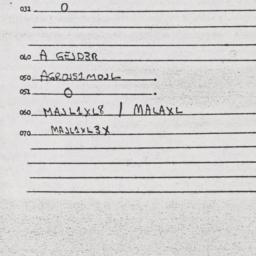 032 0
040 A GEJD3R
050 AGROUS1MOJL .
052 0 .
060 MAJL1XL8 / MALAXL
070 MAJL1XL3X